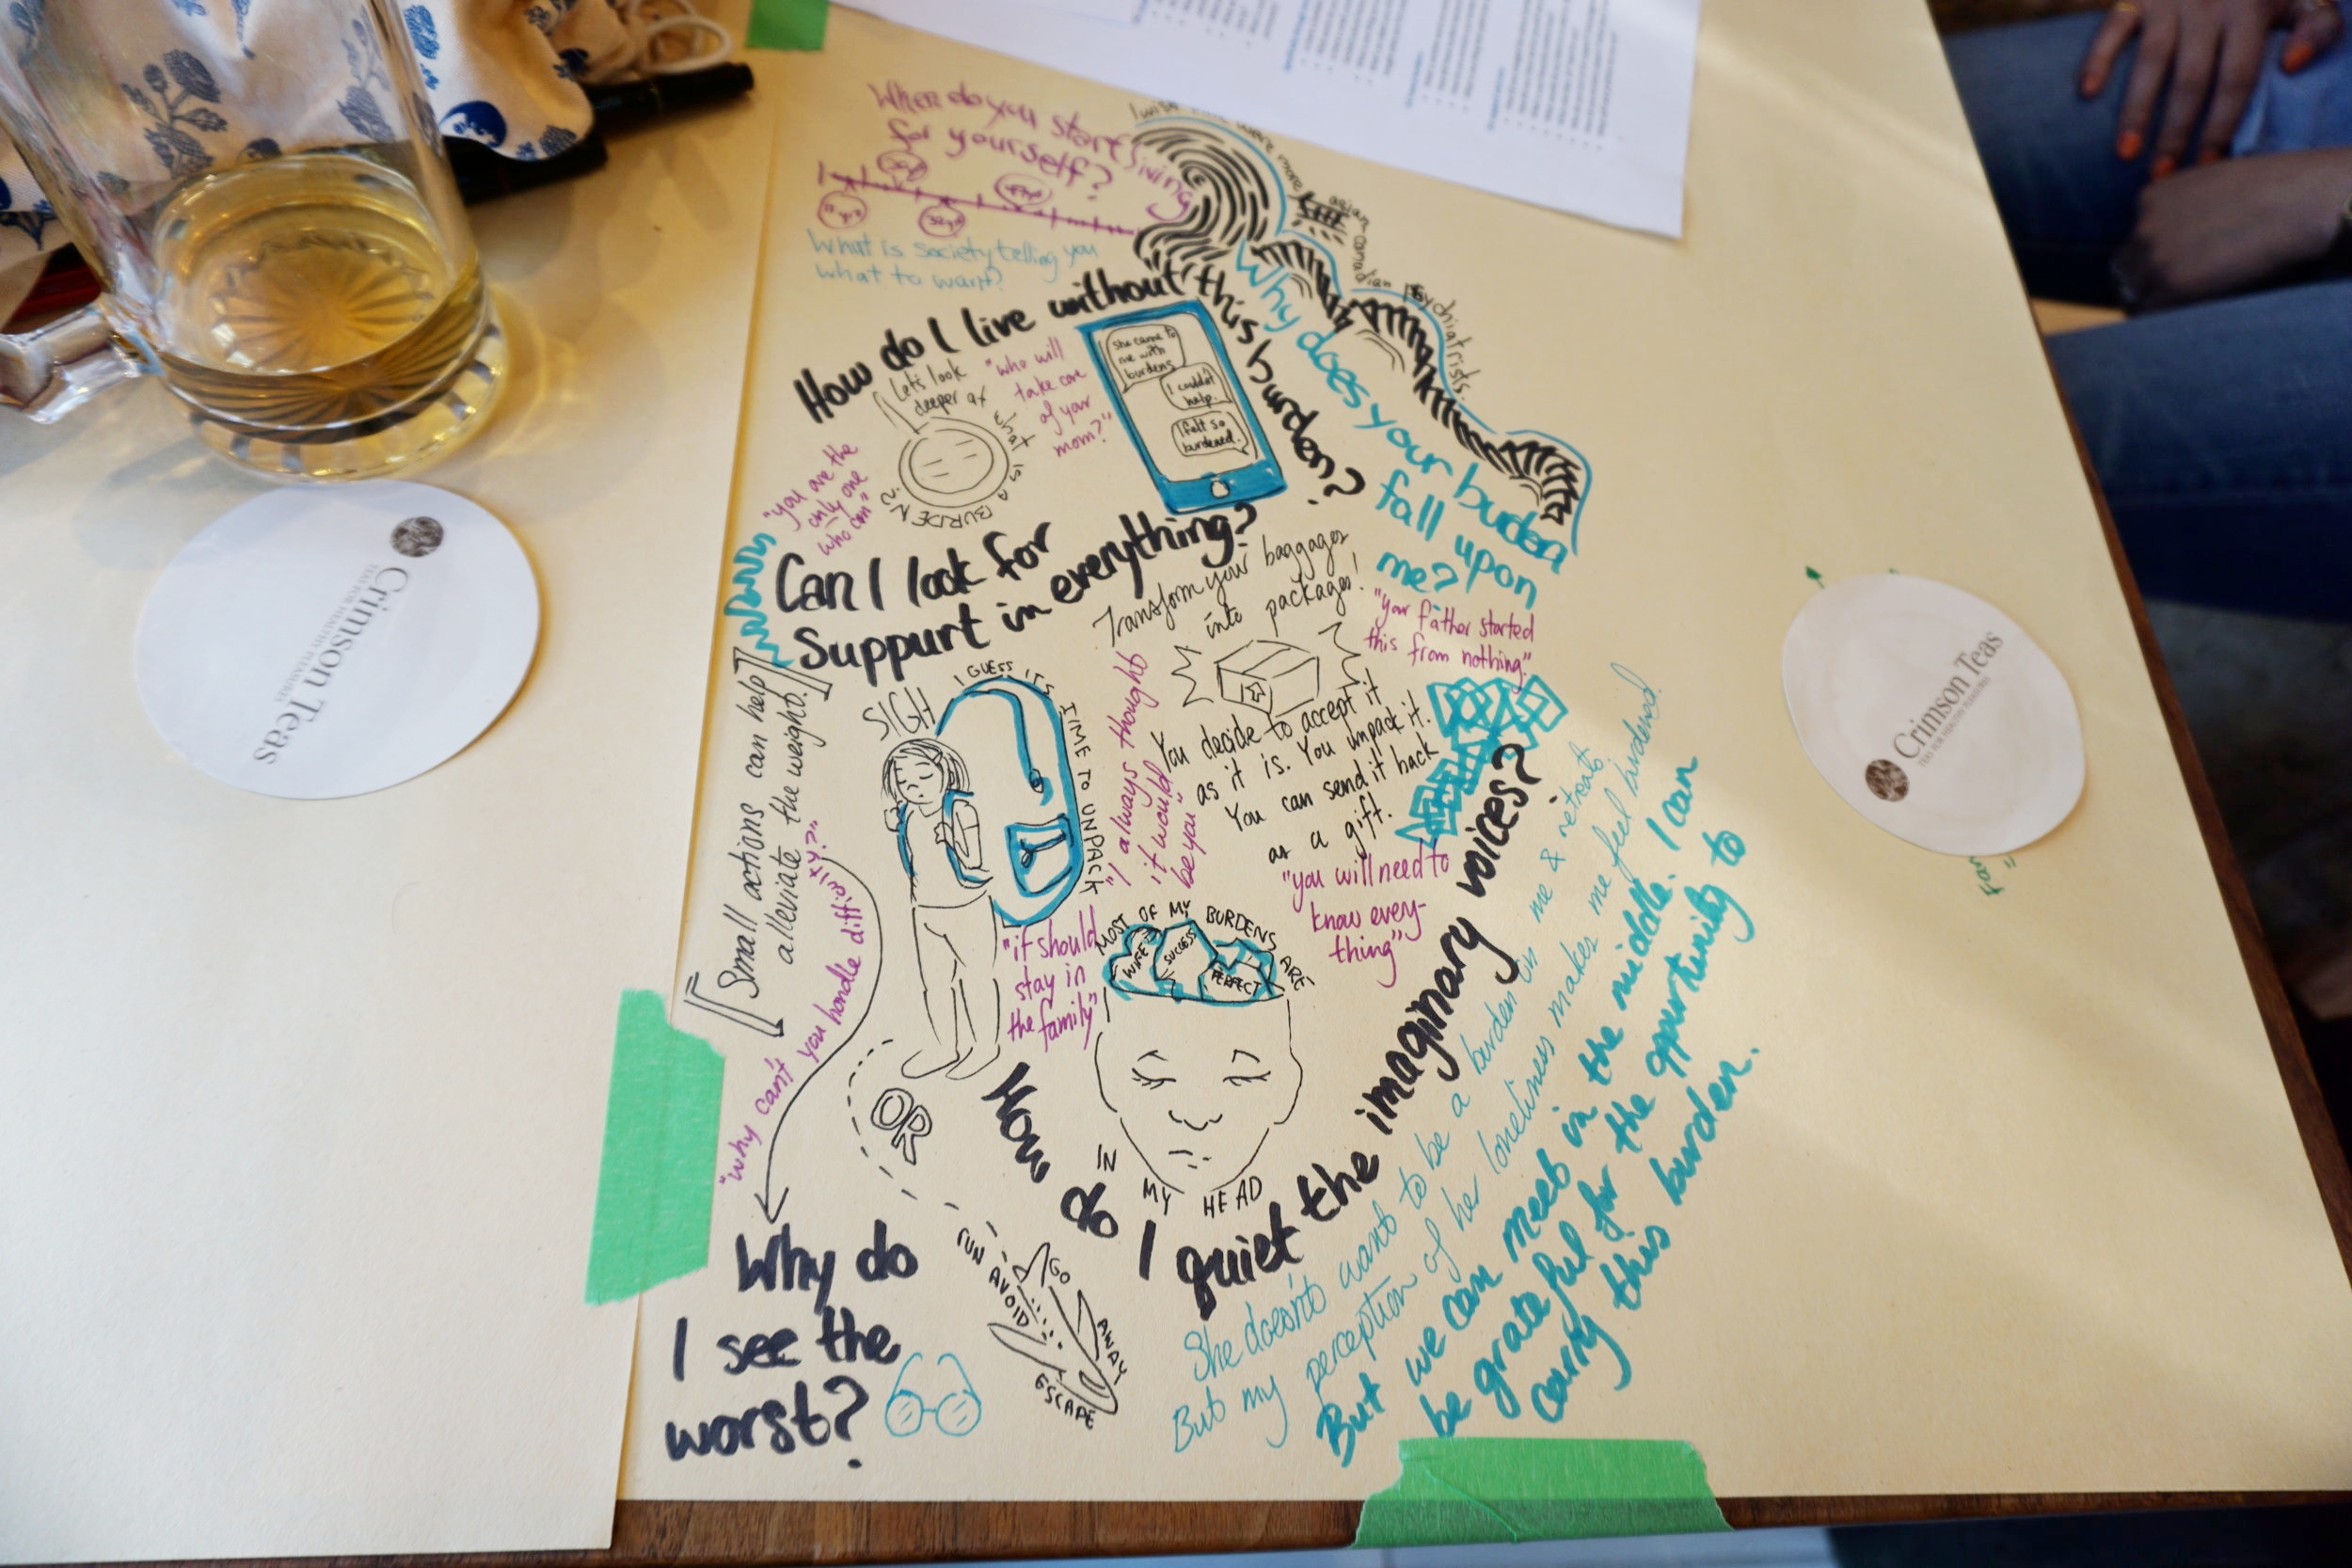 When do you start living
for yourself?
What is society telling you
what to want?
I wish there were more asian canadian psychiatrists.
How do I live without this burden?
Let's look
deeper at
what is a
BURDEN?
"who will
take care
of your
mom?"
She came to
me with
burdens.
I couldn't
help.
I felt so
burdened.
Why does your burden
fall upon
me?
"you are the
only one
who can"
Can I look for
Support in everything?
Transform your baggages
into packages!
"your father started
this from nothing"
You decide to accept it
as it is. You unpack it.
You can send it back
as a gift.
"I always thought
it would
be you"
SIGH
I GUESS IT'S TIME TO UNPACK
Small actions can help
alleviate the weight.
"why can't you handle difficulty?"
"if should
stay in
the family"
"you will need to
know every-
thing"
MOST OF MY BURDENS ARE
WIFE
SUCCESS
PERFECT
IN
MY
HEAD
How do
I quiet the imaginary voices?
OR
RUN AVOID
GO
AWAY
ESCAPE
Why do
I see the
worst?
She doesn't want to be a burden on me & retreats.
But my perception of her loneliness makes me feel burdened.
But we can meet in the middle. I can
be grateful for the opportunity to
carry this burden.
Crimson Teas
TEAS FOR HEALTHY PLEASURES
Crimson Teas
TEAS FOR HEALTHY PLEASURES